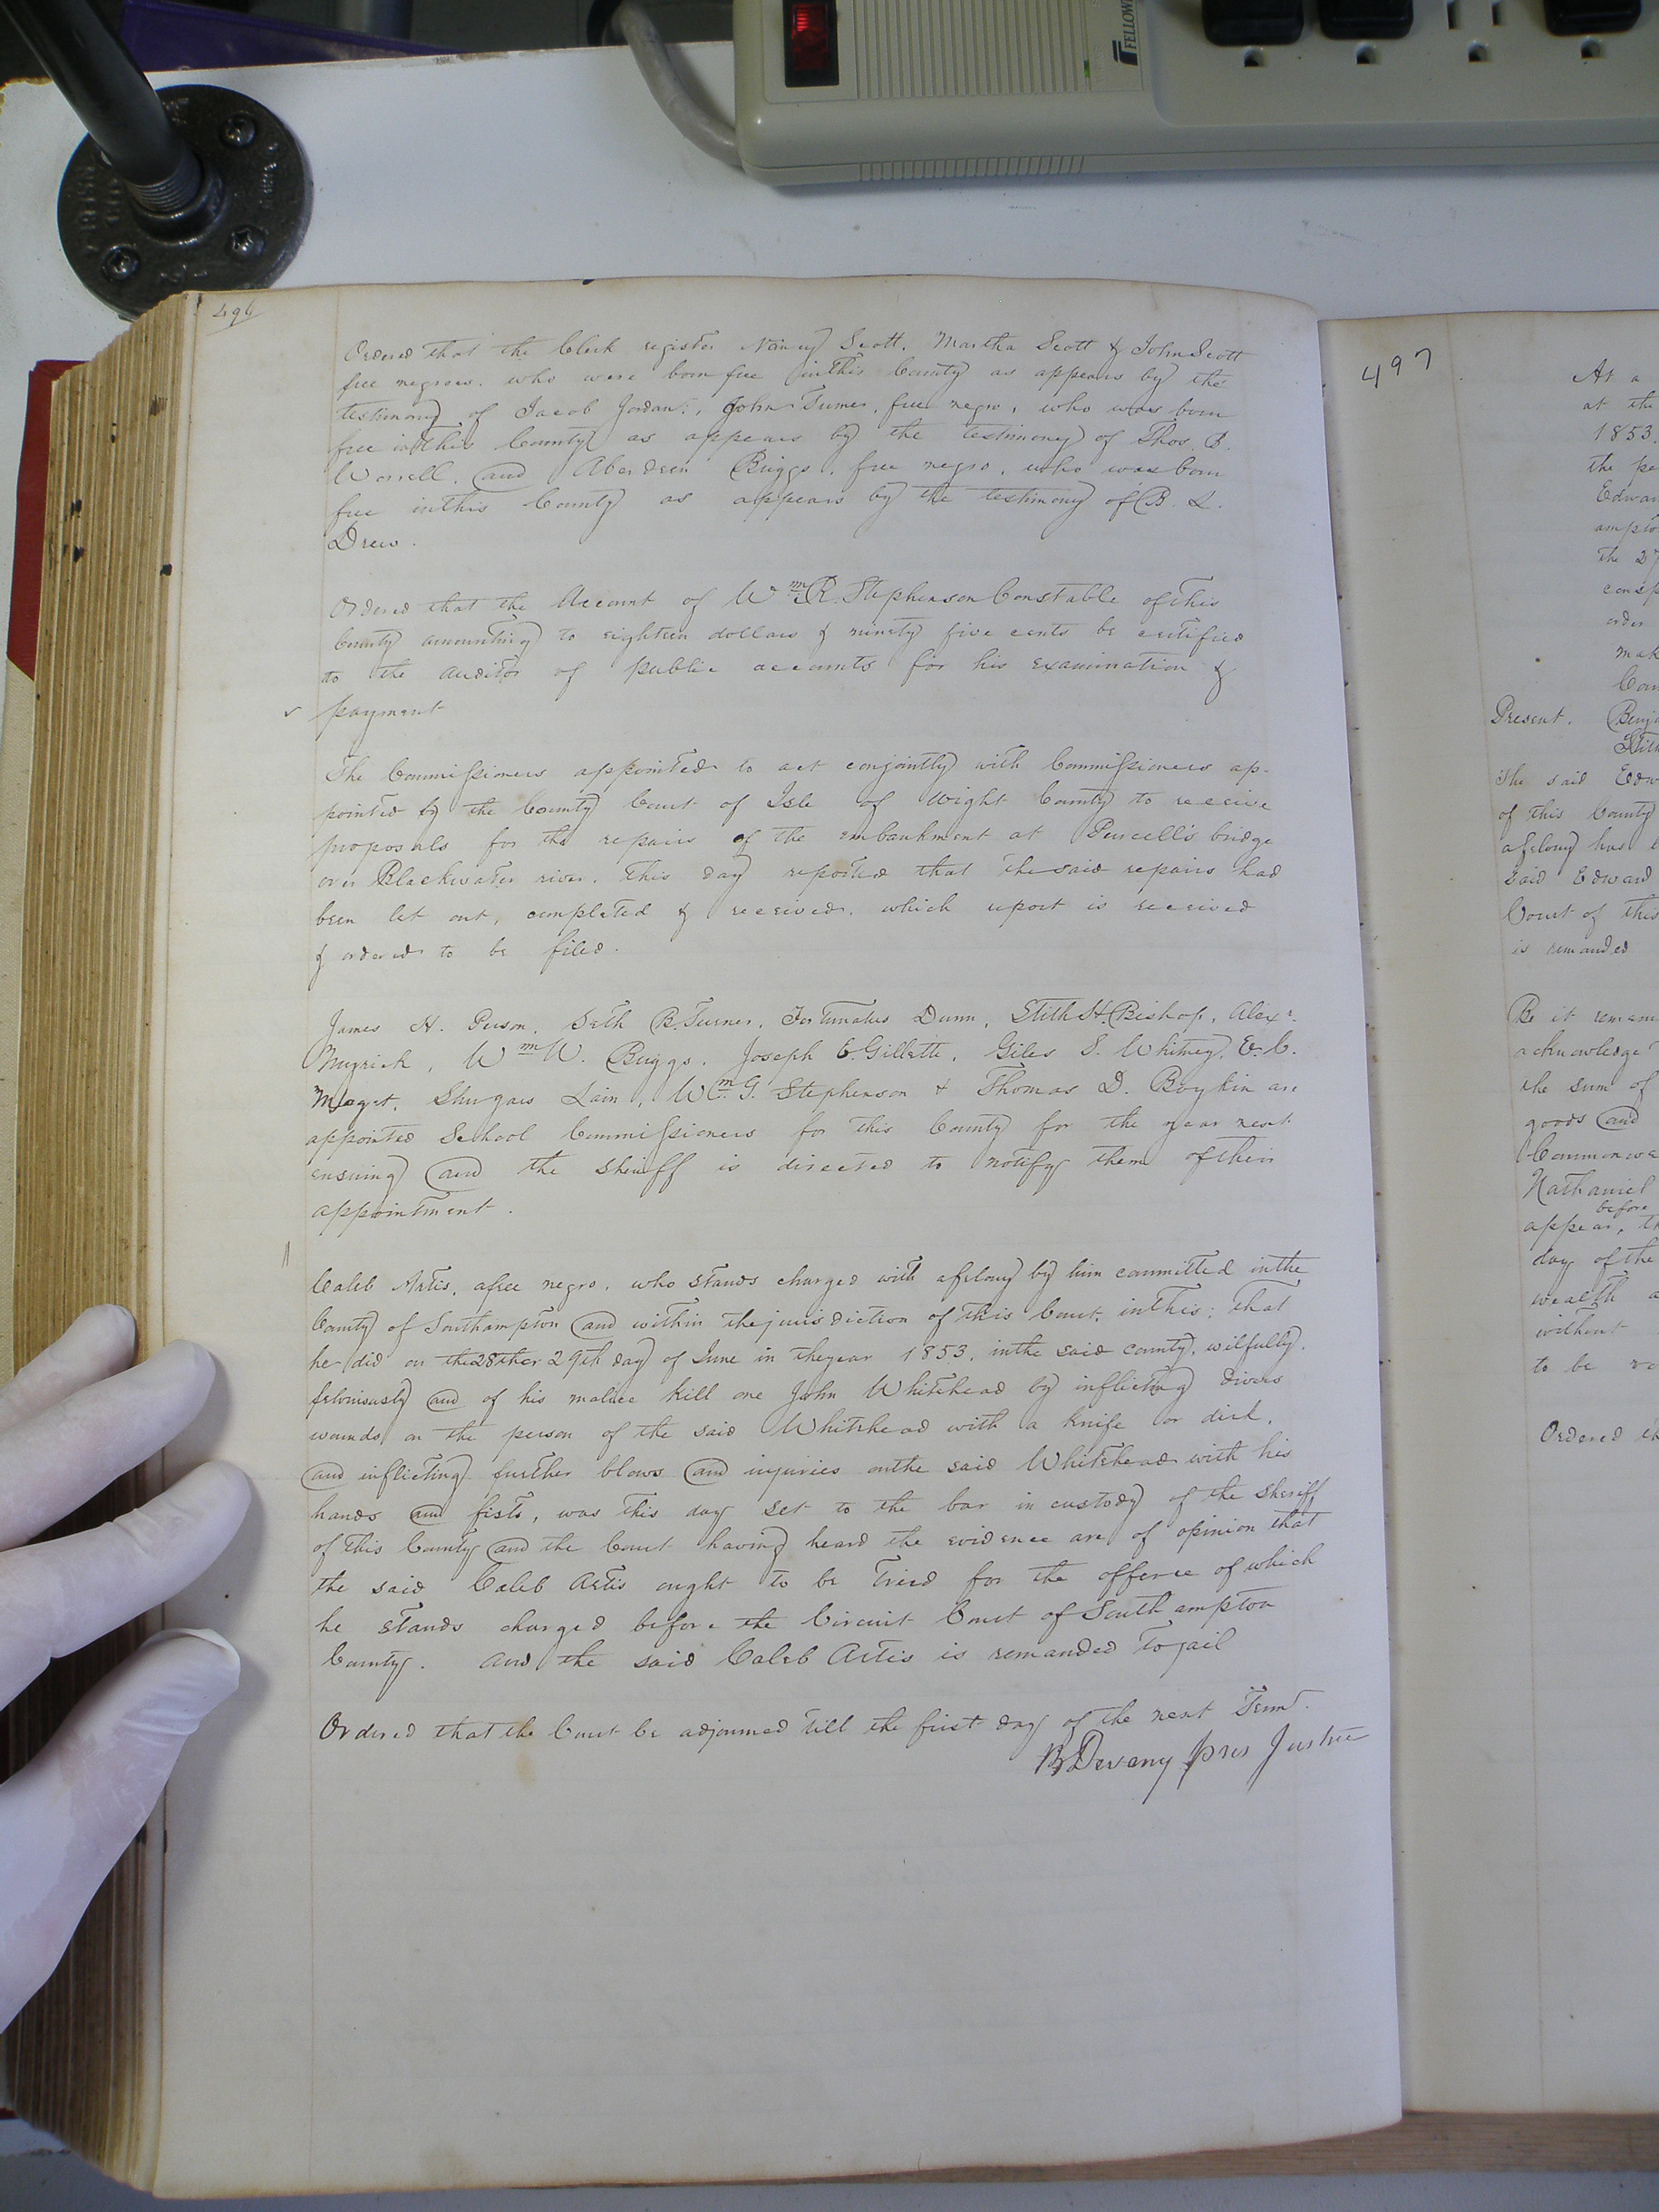 FELLOWE
496
Ordered that the Clerk register Nancy Scott, Martha Scott & John Scott
free negroes, who were born free in this County as appears by the
testimony of Jacob Jordan, John Turner, free negro, who was born
free in this County as appears by the testimony of Thos. B.
Worrell, and Aberdeen Briggs, free negro, who was born
free in this County as appears by the testimony of B. L.
Drew.
Ordered that the Account of Wm R. Stephenson Constable of this
County amounting to eighteen dollars & ninety five cents be certified
to the Auditor of public accounts for his examination &
payment
The Commissioners appointed to act conjointly with Commissioners ap-
pointed by the County Court of Isle of Wight County to receive
proposals for the repairs of the embankment at Purcell's bridge
over Blackwater river, this day reported that the said repairs had
been let out, completed & received, which report is received
& ordered to be filed.
James H. Person, Seth B. Turner, Fortunatus Dunn, Stith H. Bishop, Alexr.
Myrick, Wm W. Briggs, Joseph E. Gillette, Giles S. Whitney, E. C.
Moget, Shugars Lain, Wm G. Stephenson & Thomas D. Boykin are
appointed School Commissioners for this County for the year next
ensuing and the sheriff is directed to notify them of their
appointment.
Caleb Artis, a free negro, who stands charged with a felony by him committed in the
County of Southampton and within the jurisdiction of this Court, in this; that
he did on the 28th or 29th day of June in the year 1853, in the said county, wilfully,
feloniously and of his malice kill one John Whitehead by inflicting divers
wounds on the person of the said Whitehead with a knife or dirk,
and inflicting further blows and injuries on the said Whitehead with his
hands and fists, was this day set to the bar in custody of the sheriff
of this County and the Court having heard the evidence are of opinion that
the said Caleb Artis ought to be tried for the offence of which
he stands charged before the Circuit Court of Southampton
County. And the said Caleb Artis is remanded to jail
Ordered that the Court be adjourned till the first day of the next Term.
B Devany pres Justice
497
At a
at the
1853.
the pe
Edwar
ampto
the 27
consp
order
mak
Cou
Present. Benj
Stith
The said Edw
of this County
a felony has b
said Edward
Court of this
is remanded
Be it remem
acknowledge
the sum of
goods and
Commonwea
Nathaniel
before
appear, th
day of the
wealth a
without
to be vo
Ordered th